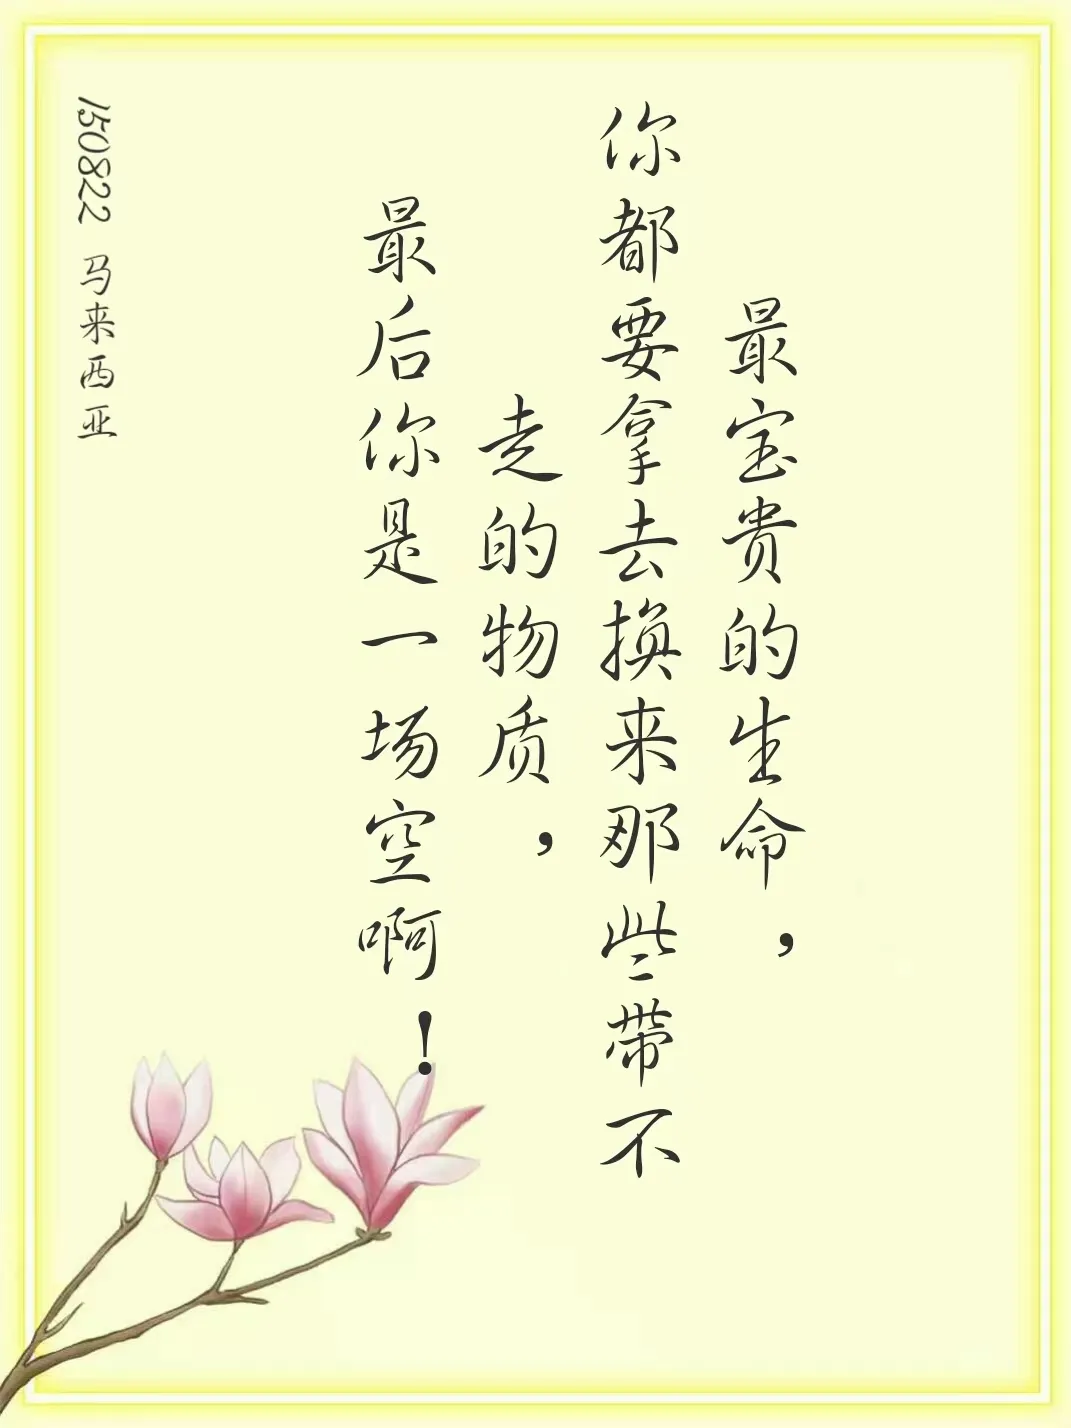 最宝贵的生命，
你都要拿去换来那些带不
走的物质，
最后你是一场空啊！
150822 马来西亚